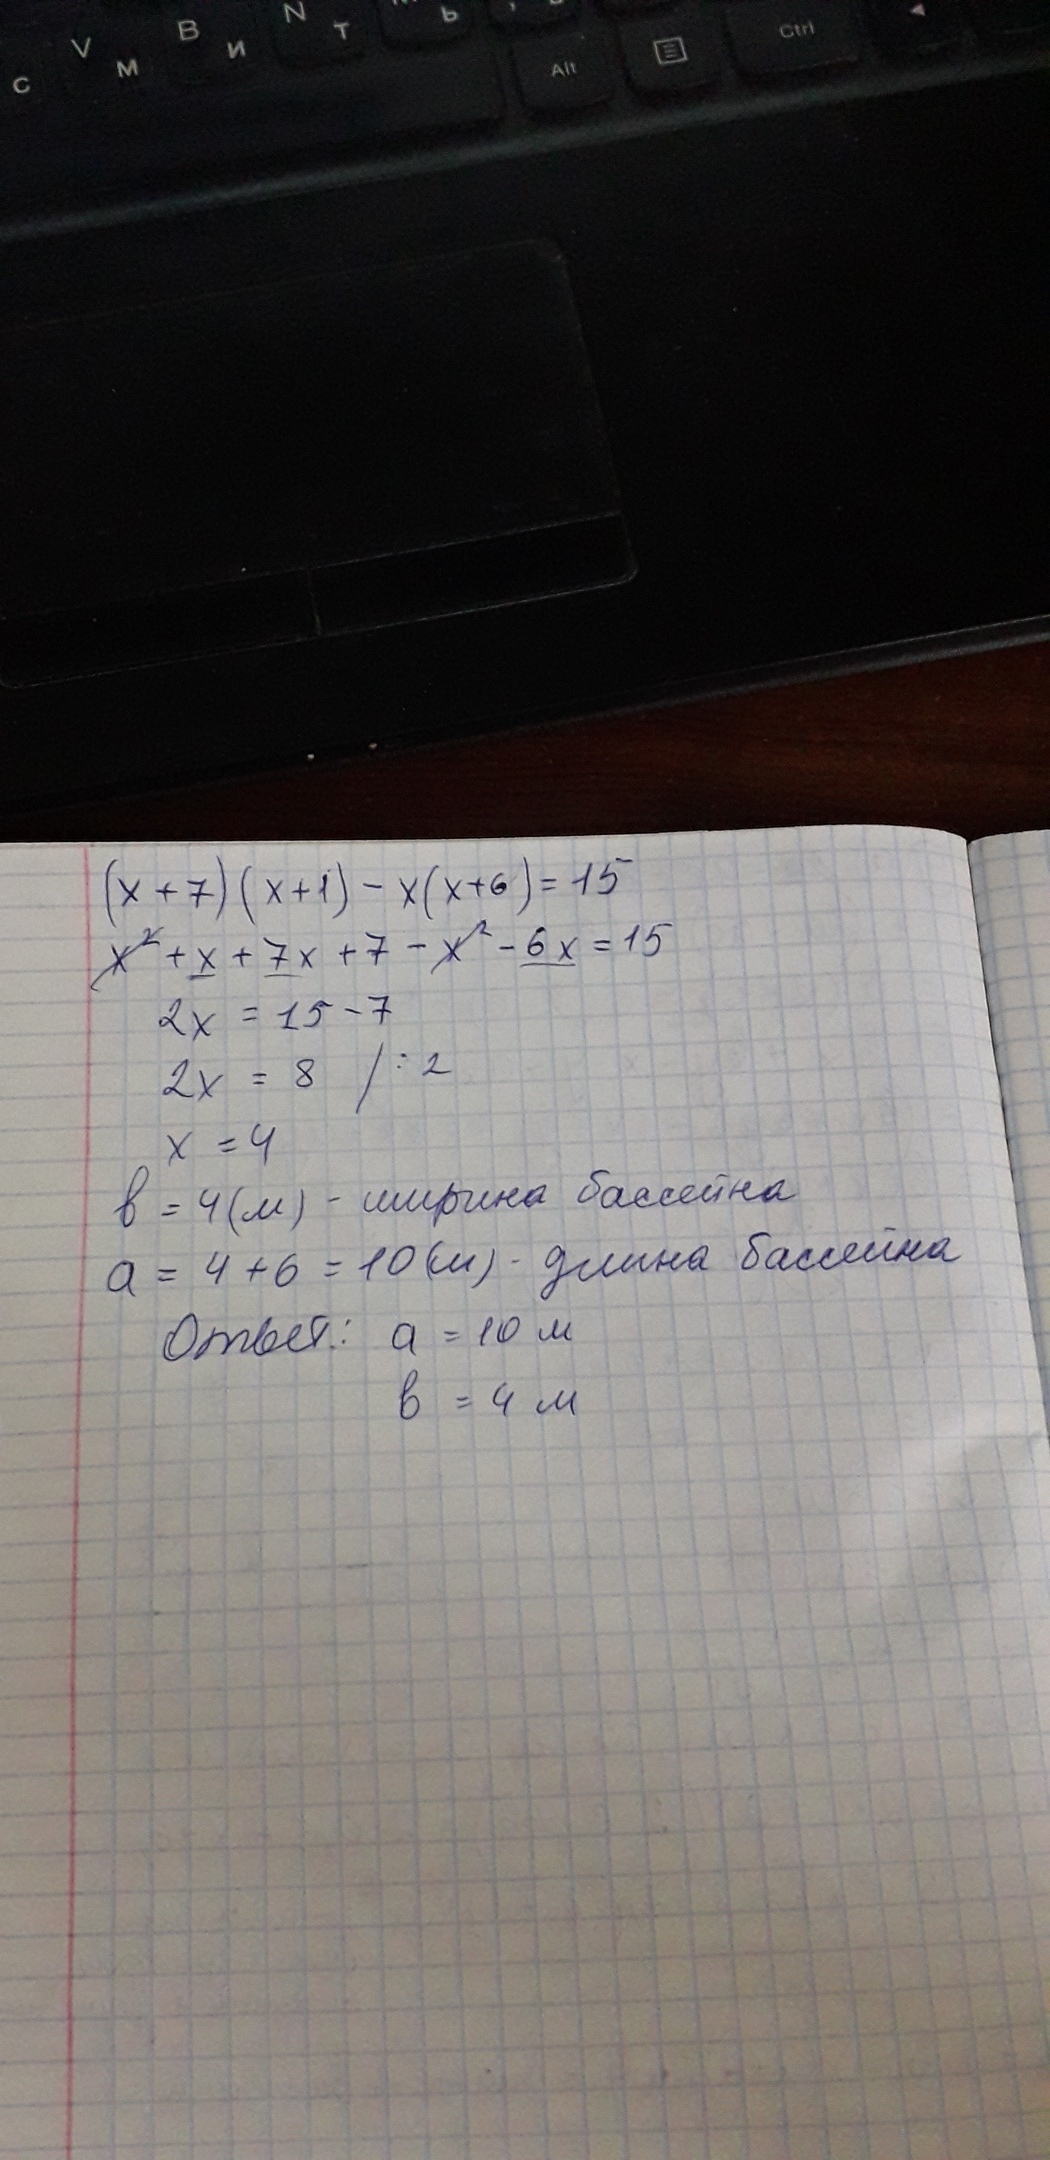 C V M B И N T Ь Alt Ctrl
(x + 7)(x+1) - x(x+6) = 15
x² + x + 7x + 7 - x² - 6x = 15
2x = 15 - 7
2x = 8 / : 2
x = 4
b = 4(м) - ширина бассейна
a = 4 + 6 = 10(м) - длина бассейна
Ответ: a = 10 м
b = 4 м